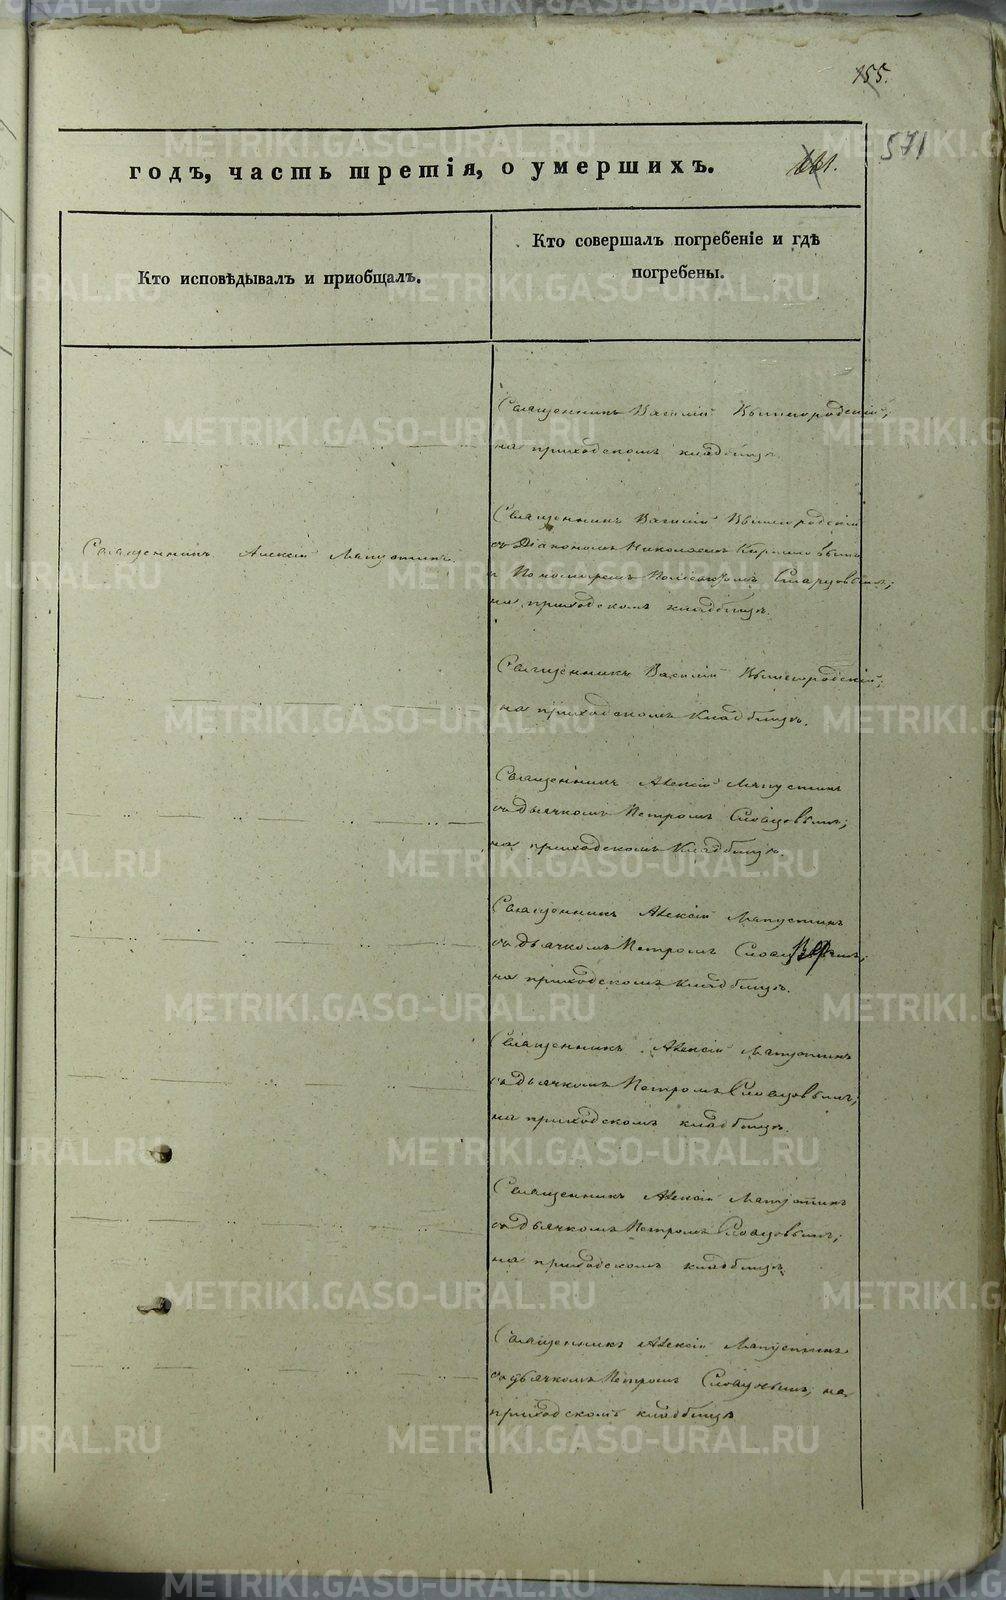 155.
571
годъ, часть третія, о умершихъ.
Кто исповѣдывалъ и пріобщалъ.
Кто совершалъ погребеніе и гдѣ
погребены.
Священникъ Василій Вышегородскій;
на приходскомъ кладбищѣ.
Священникъ Алексій
Священникъ Василій Вышегородскій
съ Діакономъ Николаемъ Кирилловымъ
и Пономаремъ
на приходскомъ кладбищѣ.
Священникъ Василій Вышегородскій;
на приходскомъ кладбищѣ.
Священникъ Алексій
съ дьячкомъ Петромъ Словцовымъ;
на приходскомъ кладбищѣ.
Священникъ Алексій
съ дьячкомъ Петромъ
на приходскомъ кладбищѣ.
Священникъ Алексій
съ дьячкомъ Петромъ Словцовымъ;
на приходскомъ кладбищѣ.
Священникъ Алексій
съ дьячкомъ Петромъ Словцовымъ;
на приходскомъ кладбищѣ.
Священникъ Алексій
съ дьячкомъ Петромъ Словцовымъ, на
приходскомъ кладбищѣ
METRIKI.GASO-URAL.RU